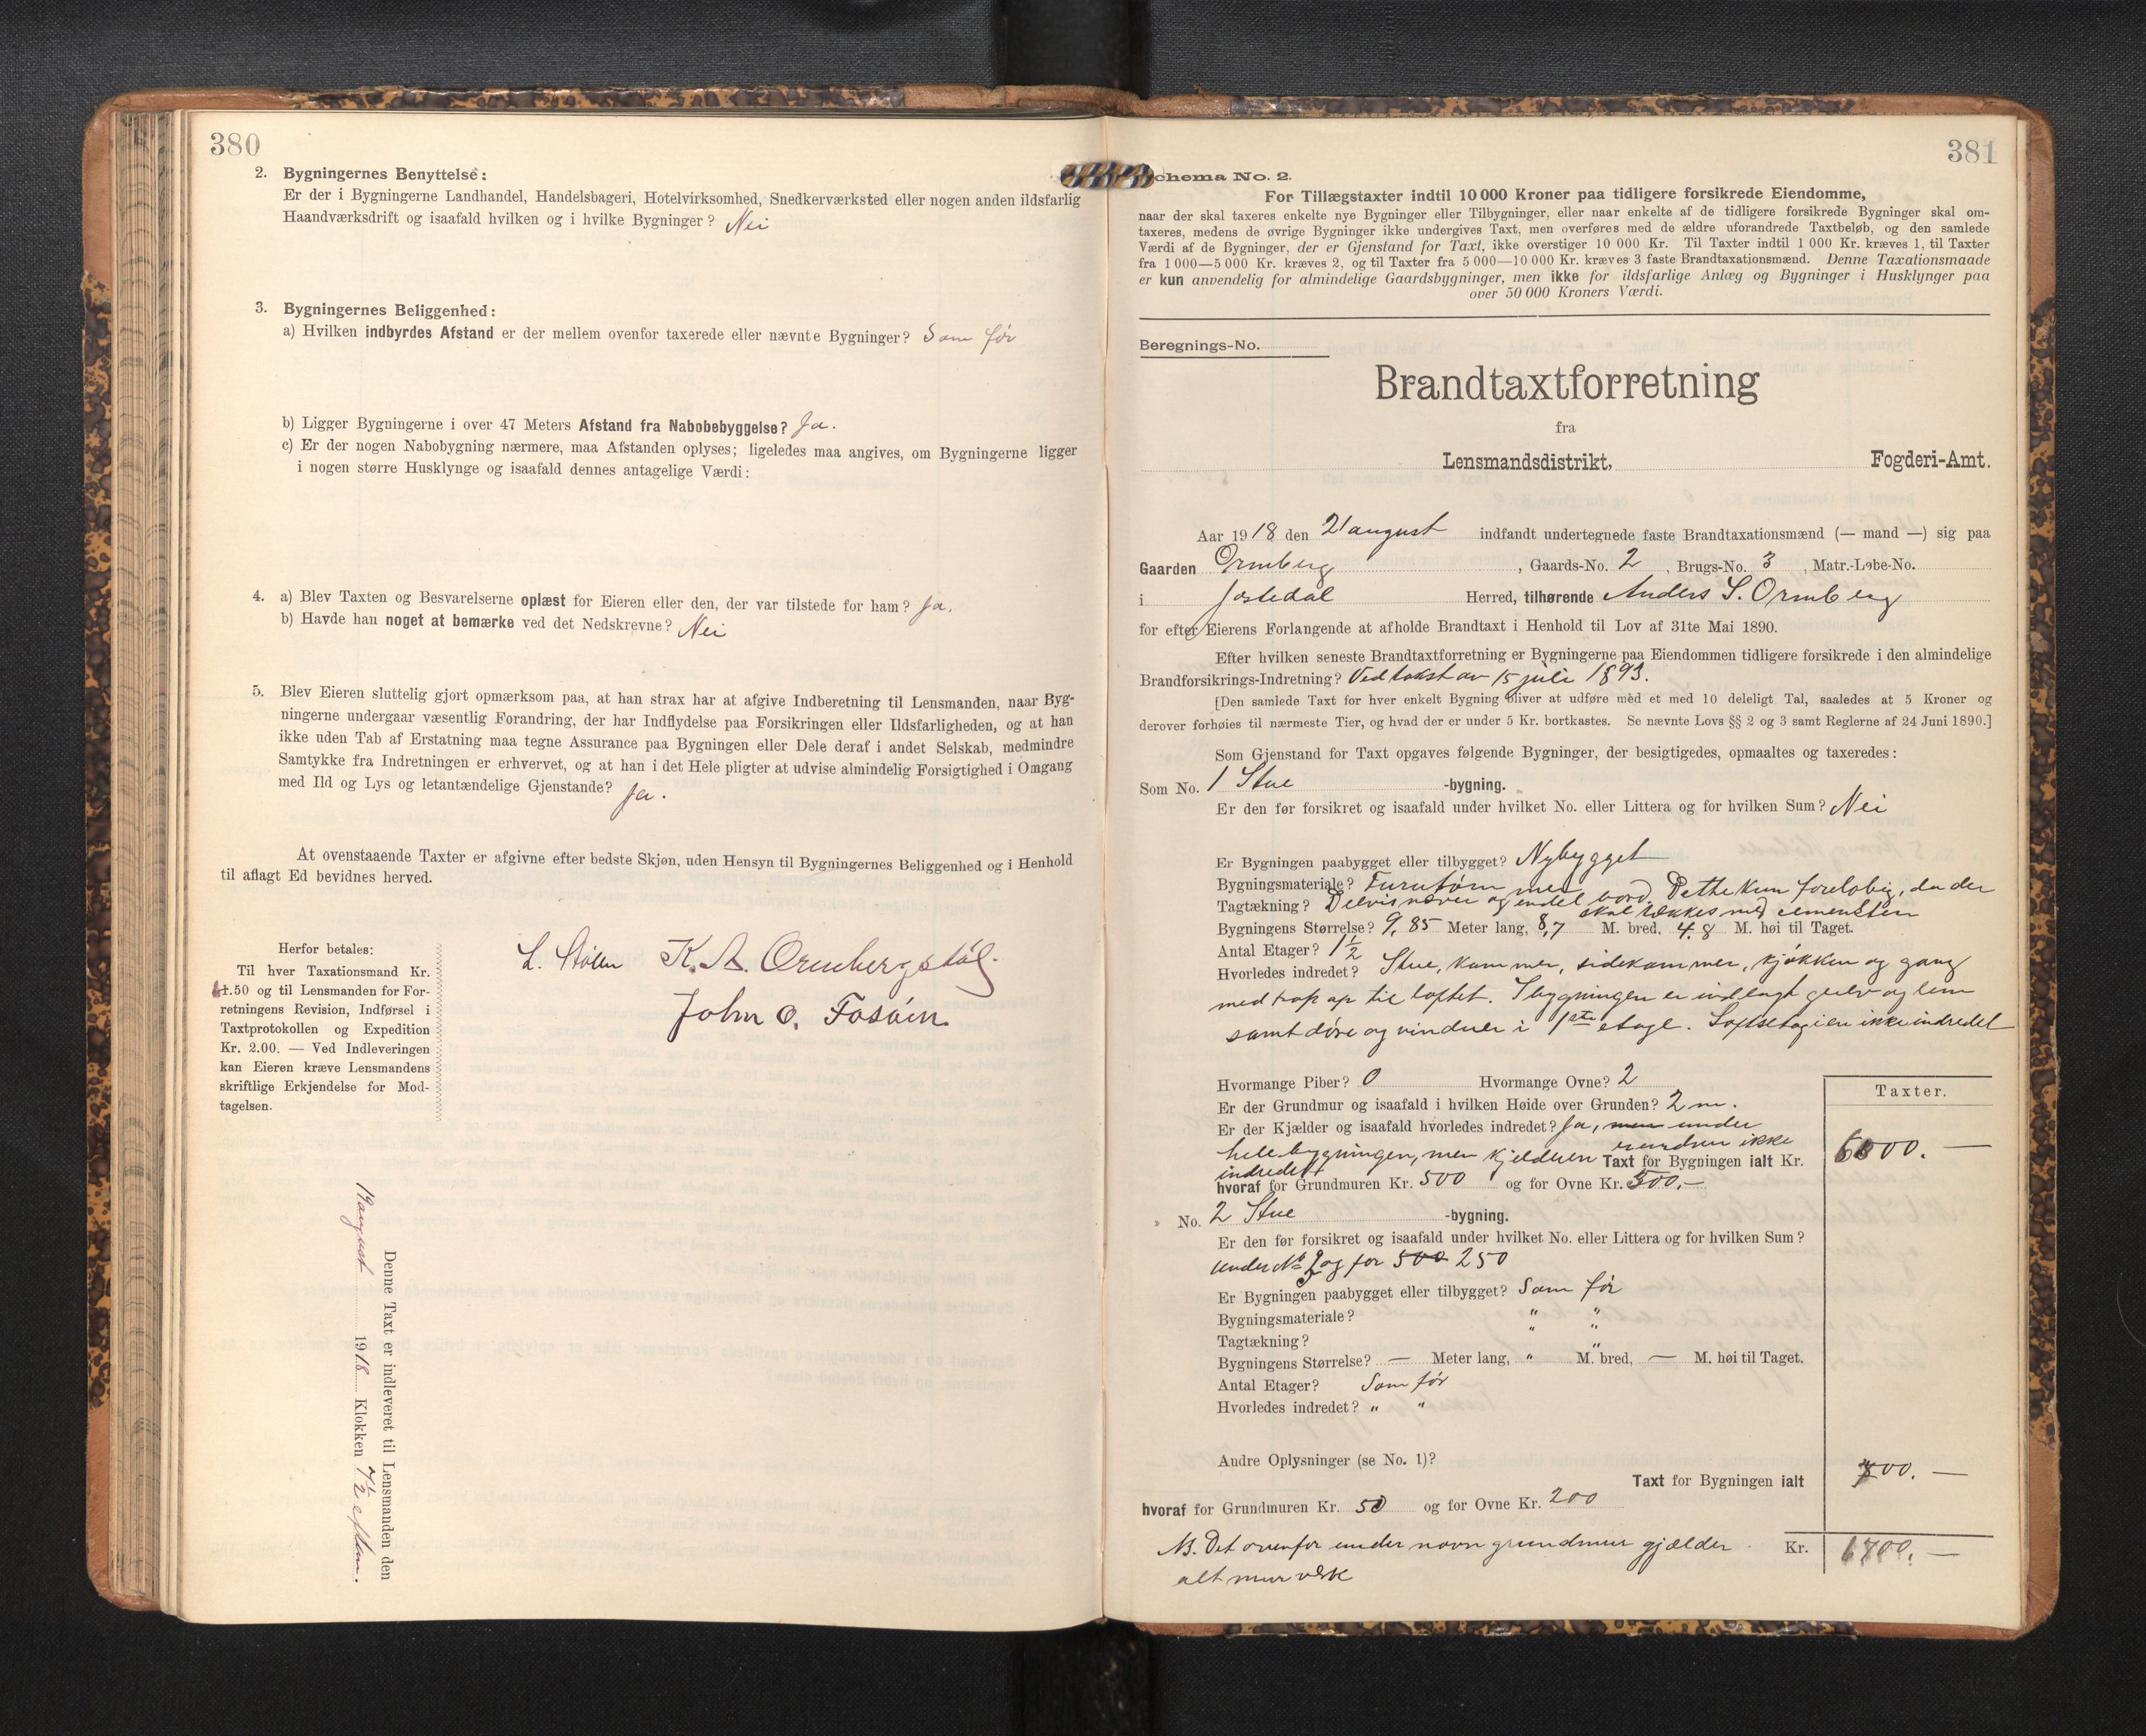 380
2. Bygningernes Benyttelse:
Er der i Bygningerne Landhandel, Handelsbageri, Hotelvirksomhed, Snedkerværksted eller nogen anden ildsfarlig
Haandværksdrift og isaafald hvilken og i hvilke Bygninger? Nei
3. Bygningernes Beliggenhed:
a) Hvilken indbyrdes Afstand er der mellem ovenfor taxerede eller nævnte Bygninger? Som før
b) Ligger Bygningerne i over 47 Meters Afstand fra Nabobebyggelse? Ja.
c) Er der nogen Nabobygning nærmere, maa Afstanden oplyses; ligeledes maa angives, om Bygningerne ligger
i nogen større Husklynge og isaafald dennes antagelige Værdi:
4. a) Blev Taxten og Besvarelserne oplæst for Eieren eller den, der var tilstede for ham? Ja.
b) Havde han noget at bemærke ved det Nedskrevne? Nei
5. Blev Eieren sluttelig gjort opmærksom paa, at han strax har at afgive Indberetning til Lensmanden, naar Byg-
ningerne undergaar væsentlig Forandring, der har Indflydelse paa Forsikringen eller Ildsfarligheden, og at han
ikke uden Tab af Erstatning maa tegne Assurance paa Bygningen eller Dele deraf i andet Selskab, medmindre
Samtykke fra Indretningen er erhvervet, og at han i det Hele pligter at udvise almindelig Forsigtighed i Omgang
med Ild og Lys og letantændelige Gjenstande? Ja.
At ovenstaaende Taxter er afgivne efter bedste Skjøn, uden Hensyn til Bygningernes Beliggenhed og i Henhold
til aflagt Ed bevidnes herved.
L. Stølen K. A. Ormbergstøl.
John O. Fosøien.
Herfor betales:
Til hver Taxationsmand Kr.
.50 og til Lensmanden for For-
retningens Revision, Indførsel i
Taxtprotokollen og Expedition
Kr. 2.00. — Ved Indleveringen
kan Eieren kræve Lensmandens
skriftlige Erkjendelse for Mod-
tagelsen.
Denne Taxt er indleveret til Lensmanden den
august 1918 Klokken 7½ eftm.
381
chema No. 2.
For Tillægstaxter indtil 10 000 Kroner paa tidligere forsikrede Eiendomme,
naar der skal taxeres enkelte nye Bygninger eller Tilbygninger, eller naar enkelte af de tidligere forsikrede Bygninger skal om-
taxeres, medens de øvrige Bygninger ikke undergives Taxt, men overføres med de ældre uforandrede Taxtbeløb, og den samlede
Værdi af de Bygninger, der er Gjenstand for Taxt, ikke overstiger 10 000 Kr. Til Taxter indtil 1 000 Kr. kræves 1, til Taxter
fra 1 000—5 000 Kr. kræves 2, og til Taxter fra 5 000—10 000 Kr. kræves 3 faste Brandtaxationsmænd. Denne Taxationsmaade
er kun anvendelig for almindelige Gaardsbygninger, men ikke for ildsfarlige Anlæg og Bygninger i Husklynger paa
over 50 000 Kroners Værdi.
Beregnings-No.
Brandtaxtforretning
fra
Lensmandsdistrikt, Fogderi-Amt.
Aar 1918 den 21 august indfandt undertegnede faste Brandtaxationsmænd (— mand —) sig paa
Gaarden Ormberg, Gaards-No. 2, Brugs-No. 3, Matr.-Løbe-No.
i Jostedal Herred, tilhørende Anders S. Ormberg
for efter Eierens Forlangende at afholde Brandtaxt i Henhold til Lov af 31te Mai 1890.
Efter hvilken seneste Brandtaxtforretning er Bygningerne paa Eiendommen tidligere forsikrede i den almindelige
Brandforsikrings-Indretning? Ved takst av 15 juli 1893.
[Den samlede Taxt for hver enkelt Bygning bliver at udføre med et med 10 deleligt Tal, saaledes at 5 Kroner og
derover forhøies til nærmeste Tier, og hvad der er under 5 Kr. bortkastes. Se nævnte Lovs §§ 2 og 3 samt Reglerne af 24 Juni 1890.]
Som Gjenstand for Taxt opgaves følgende Bygninger, der besigtigedes, opmaaltes og taxeredes:
Som No. 1 Stue -bygning.
Er den før forsikret og isaafald under hvilket No. eller Littera og for hvilken Sum? Nei
Er Bygningen paabygget eller tilbygget? Nybygget
Bygningsmateriale? Furutøm mer
Tagtækning? Delvis næver og endel bord. Dette kun foreløbig, da der
skal tækkes med sementsten
Bygningens Størrelse? 9,85 Meter lang, 8,7 M. bred, 4.8 M. høi til Taget.
Antal Etager? 1½
Hvorledes indredet? Stue, kammer, sidekammer, kjøkken og gang
med trap op til loftet. I bygningen er indlagt gulv og lem
samt døre og vinduer i 1ste etage. Loftsetagien ikke indredet
Hvormange Piber? 0 Hvormange Ovne? 2
Er der Grundmur og isaafald i hvilken Høide over Grunden? 2 m.
Taxter.
Er der Kjælder og isaafald hvorledes indredet? Ja, men under
hele bygningen, men kjelderen endnu ikke
indredet
Taxt for Bygningen ialt Kr. 6000. —
hvoraf for Grundmuren Kr. 500 og for Ovne Kr. 300,—
No. 2 Stue -bygning.
Er den før forsikret og isaafald under hvilket No. eller Littera og for hvilken Sum?
under No 2 og for 500 250
Er Bygningen paabygget eller tilbygget? Som før
Bygningsmateriale? " "
Tagtækning? " "
Bygningens Størrelse? — Meter lang, " M. bred, — M. høi til Taget.
Antal Etager? Som før
Hvorledes indredet? " "
Andre Oplysninger (se No. 1)?
Taxt for Bygningen ialt 700. —
hvoraf for Grundmuren Kr. 50 og for Ovne Kr. 200
NB. Det ovenfor under navn grundmur gjælder
alt murværk
Kr. 6700. —